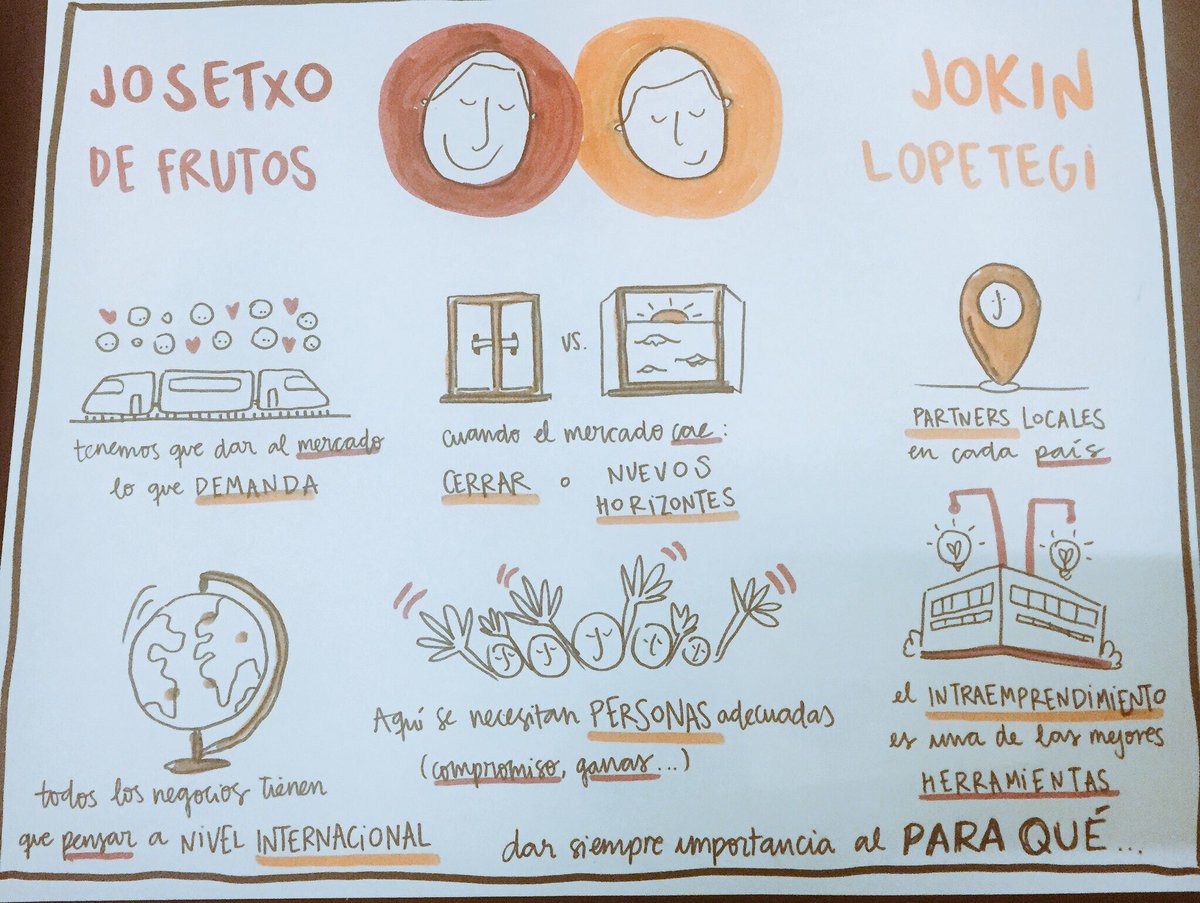 JOSETXO
DE FRUTOS
JOKIN
LOPETEGI
tenemos que dar al mercado
lo que DEMANDA
VS.
cuando el mercado cae:
CERRAR o NUEVOS
HORIZONTES
PARTNERS LOCALES
en cada país
todos los negocios tienen
que pensar a NIVEL INTERNACIONAL
Aquí se necesitan PERSONAS adecuadas
(compromiso, ganas...)
el INTRAEMPRENDIMIENTO
es una de las mejores
HERRAMIENTAS
dar siempre importancia al PARA QUÉ...